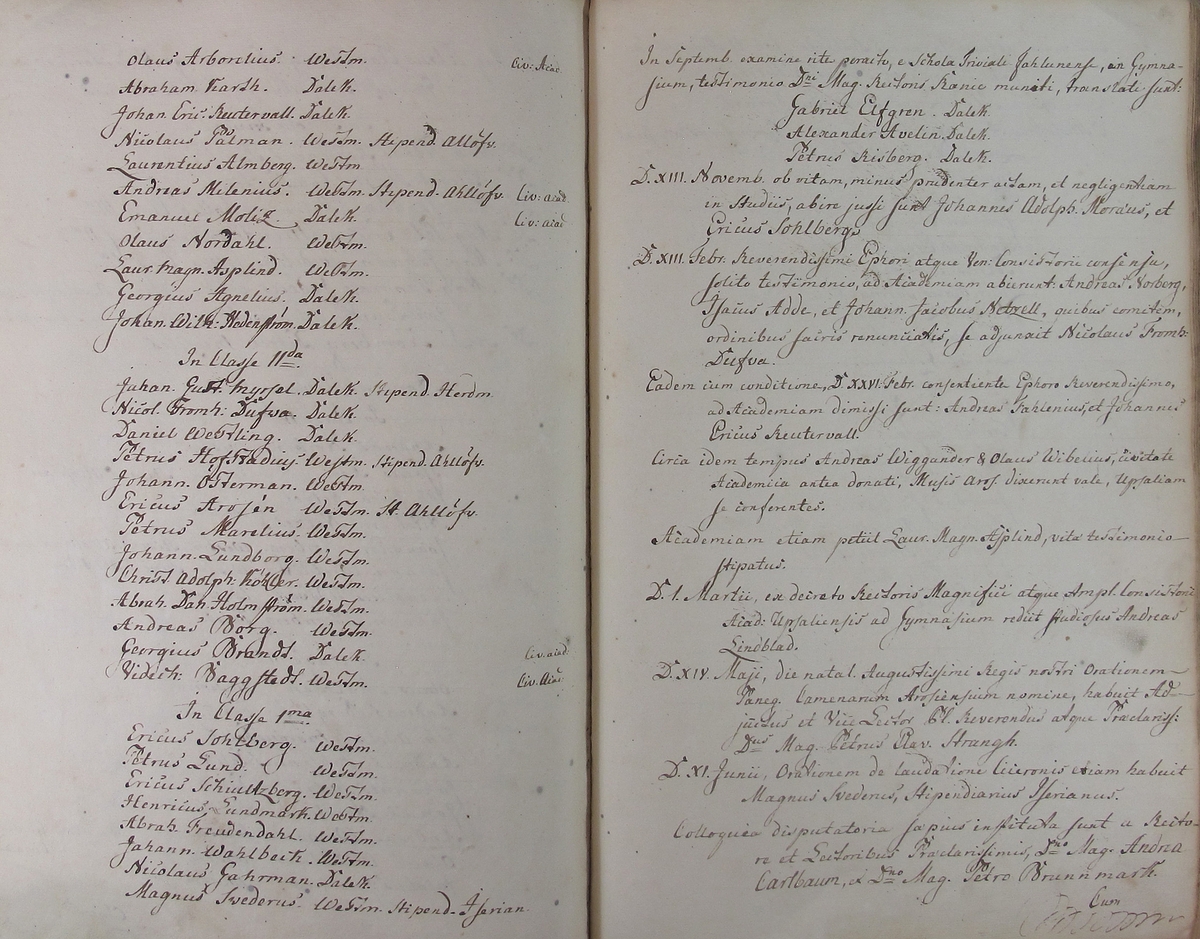 Olaus Arborelius. Westm. Civ: Acad.
Abraham Karth. Dalek.
Johan Eric. Keutervall. Dalek.
Nicolaus Pålman. Westm. Stipend. Ahllöfv.
Laurentius Almberg. Westm
Andreas Melenius. Westm. Stipend. Ahllöfv. Civ: acad
Emanuel Dalek. Civ: acad
Olaus Nordahl. Westm.
Laur. Magn. Asplind. Westm.
Georgius Agnelius. Dalek.
Johan. Wilh: Hedenström. Dalek.
In Classe IIda
Johan. Gust. Dalek. Stipend. Herdm.
Nicol. Fromh. Dufva. Dalek
Daniel Westling. Dalek.
Petrus Westm. Stipend. Ahllöfv.
Johann. Österman. Westm.
Ericus Arosén Westm. St. Ahllöfv.
Petrus Marelius. Westm.
Johann. Lundborg. Westm.
Christ. Adolph. Köhler. Westm.
Abrah. Dan. Holmström. Westm.
Andreas Borg. Westm.
Georgius Brandt. Dalek. Civ. acad.
Videch: Baggstedt. Westm. Civ. Acad
In Classe 1ma
Ericus Sohlberg. Westm.
Petrus Lund. Westm.
Ericus Schiultzberg. Westm.
Henricus Lundmark. Westm.
Abrah. Freudendahl. Westm.
Johann. Wahlbeck. Westm.
Nicolaus Gahrman. Dalek.
Magnus Svederus. Westm. Stipend. Iserian.
In Septemb. examine rite peracto, e Schola Triviale Fahlunense, in Gymna-
sium, testimonio Dni Mag. Rectoris muniti, translati sunt:
Gabriel Elfgren. Dalek.
Alexander Avelin. Dalek.
Petrus Risberg. Dalek.
D. XIII. Novemb. ob vitam, minus prudenter actam, et negligentiam
in studiis, abire jussi sunt Johannes Adolph. Moræus, et
Ericus Sohlberg.
D. XIII. Febr. Reverendissimi Ephori atque Ven: Consistorii consensu,
solito testimonio, ad Academiam abierunt: Andreas Norberg,
Isacus Adde, et Johann. Jacobus Netzell, quibus comitem,
ordinibus sacris renunciatis, se adjunxit Nicolaus Fromh:
Dufva.
Eadem cum conditione, D. XXVI. Febr. consentiente Ephoro Reverendissimo,
ad Academiam dimissi sunt: Andreas Fahlenius, et Johannes
Ericus Keutervall.
Circa idem tempus Andreas Wiggander & Olaus Wibelius, civitate
Academica antea donati, Musis Aros. dixerunt vale, Upsaliam
se conferentes.
Academiam etiam petiit Laur. Magn. Asplind, vitæ testimonio
stipatus.
D. I. Martii, ex decreto Rectoris Magnifici atque Ampl. Consistorii
Acad: Upsaliensis ad Gymnasium rediit studiosus Andreas
Lindblad.
D. XIV. Maji, die natal. Augustissimi Regis nostri Orationem
Paneg. Camenarum Arosiensium nomine, habuit Ad-
junctus et Vice Lector Pl. Reverendus atque Præclariss:
Dnus Mag. Petrus Olav. Strangh.
D. XI. Junii, Orationem de laudatione Ciceronis etiam habuit
Magnus Svederus, Stipendiarius Iserianus.
Colloquia disputatoria sæpius instituta sunt a Recto-
re et Lectoribus Præclarissimis, Dno Mag. Andrea
Carlbaum, et Dno Mag. Petro Brunnmark.
Cum